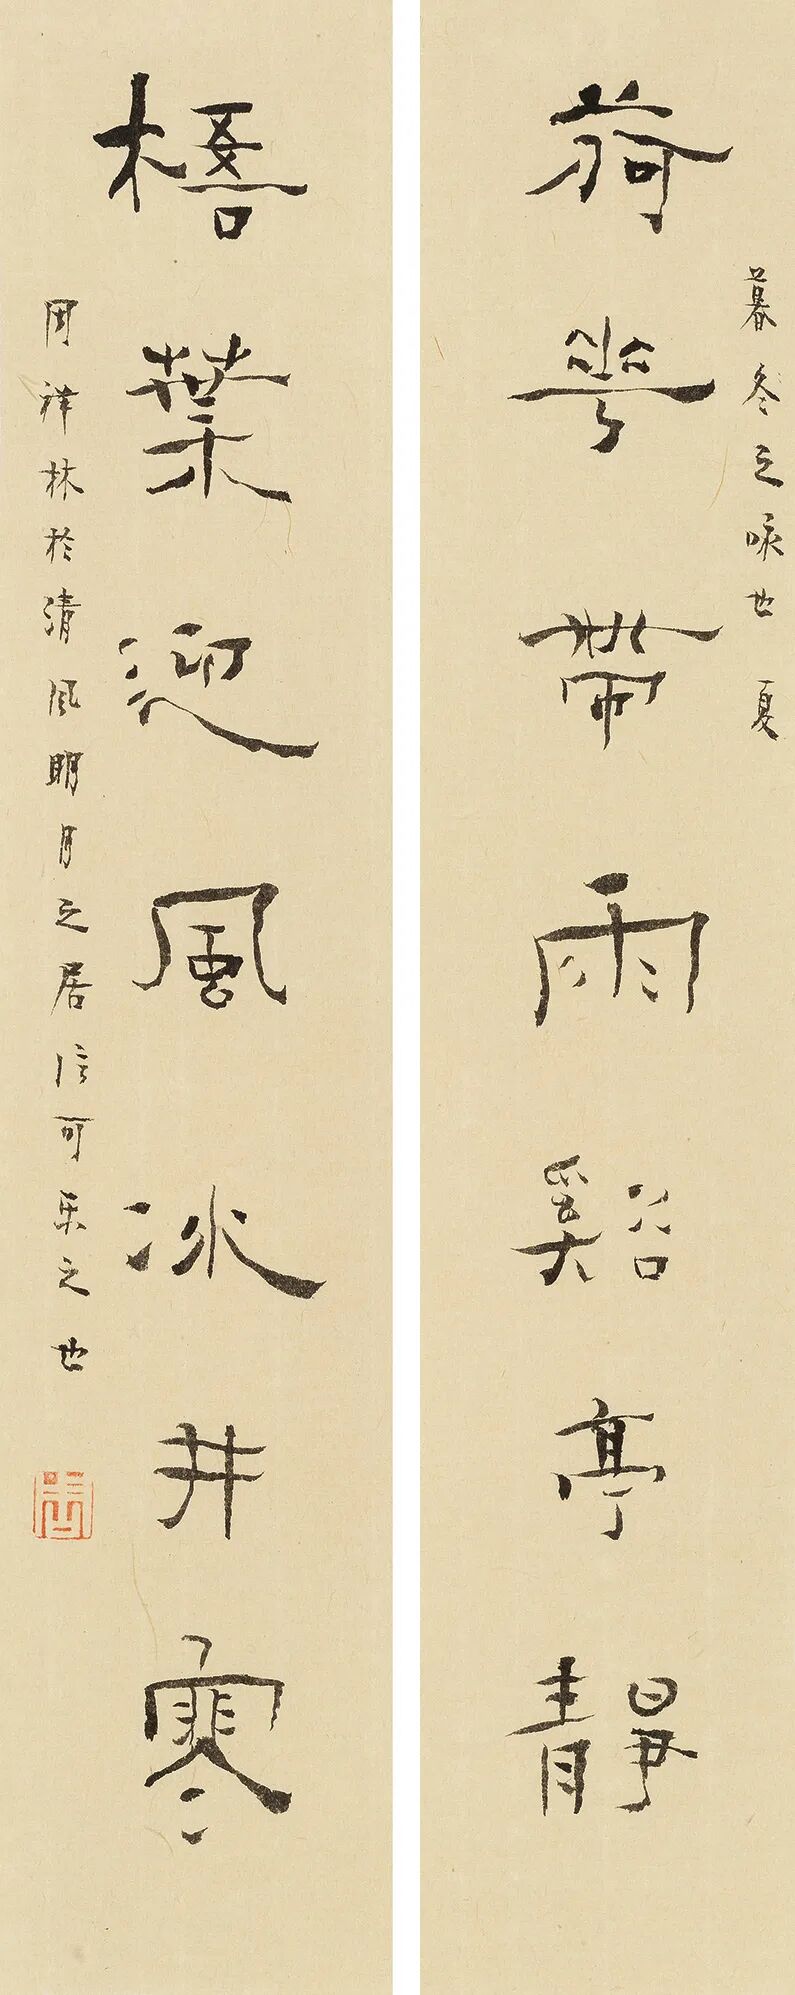 暮冬之咏也 夏
荷華帶雨谿亭靜
梧葉迎風冰井寒
周祥林於清风明月之居信可乐之也